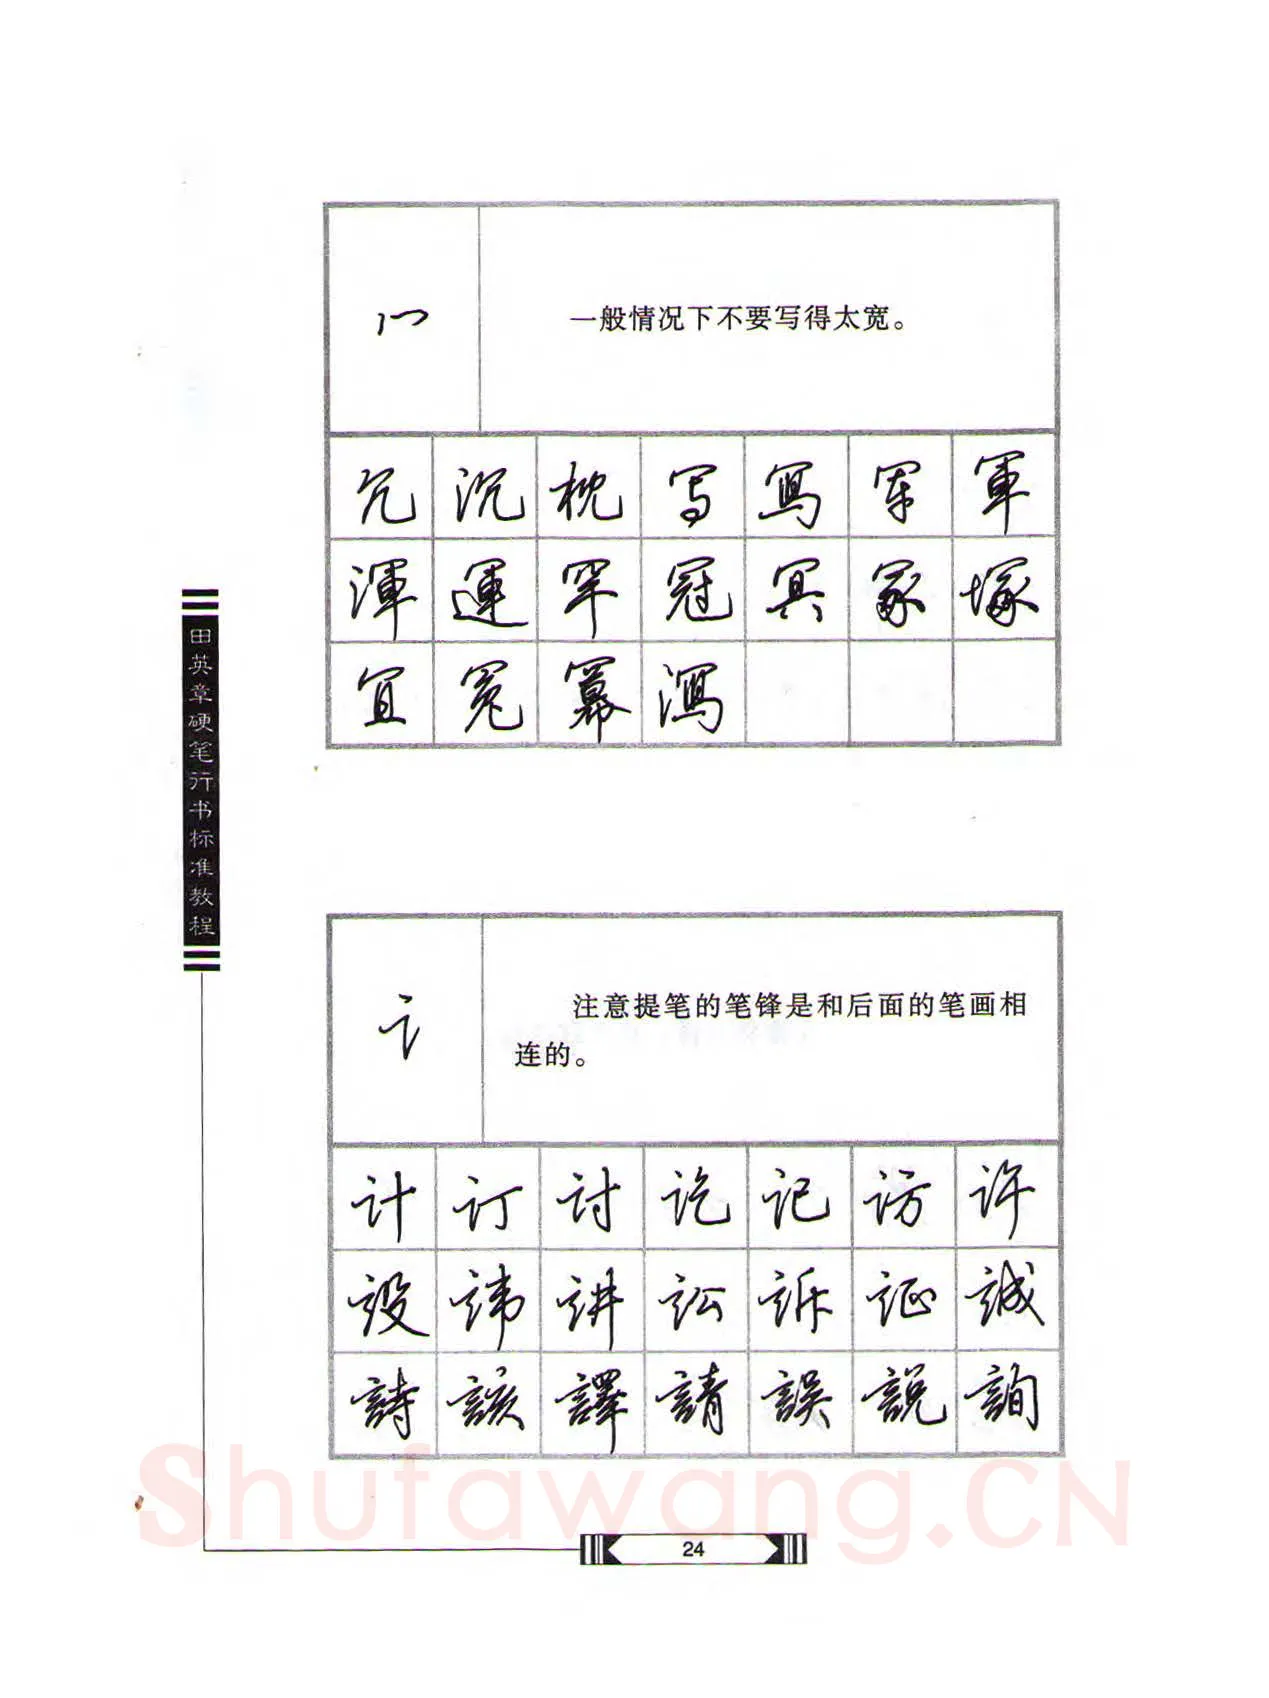 冖
一般情况下不要写得太宽。
冗 沉 枕 写 寫 军 軍
渾 運 罕 冠 冥 冢 塚
冝 冤 冪 瀉
田英章硬笔行书标准教程
讠
注意提笔的笔锋是和后面的笔画相
连的。
计 订 讨 讫 记 访 许
设 讳 讲 讼 诉 证 誠
詩 該 譯 請 誤 說 詢
Shufawang.CN
24